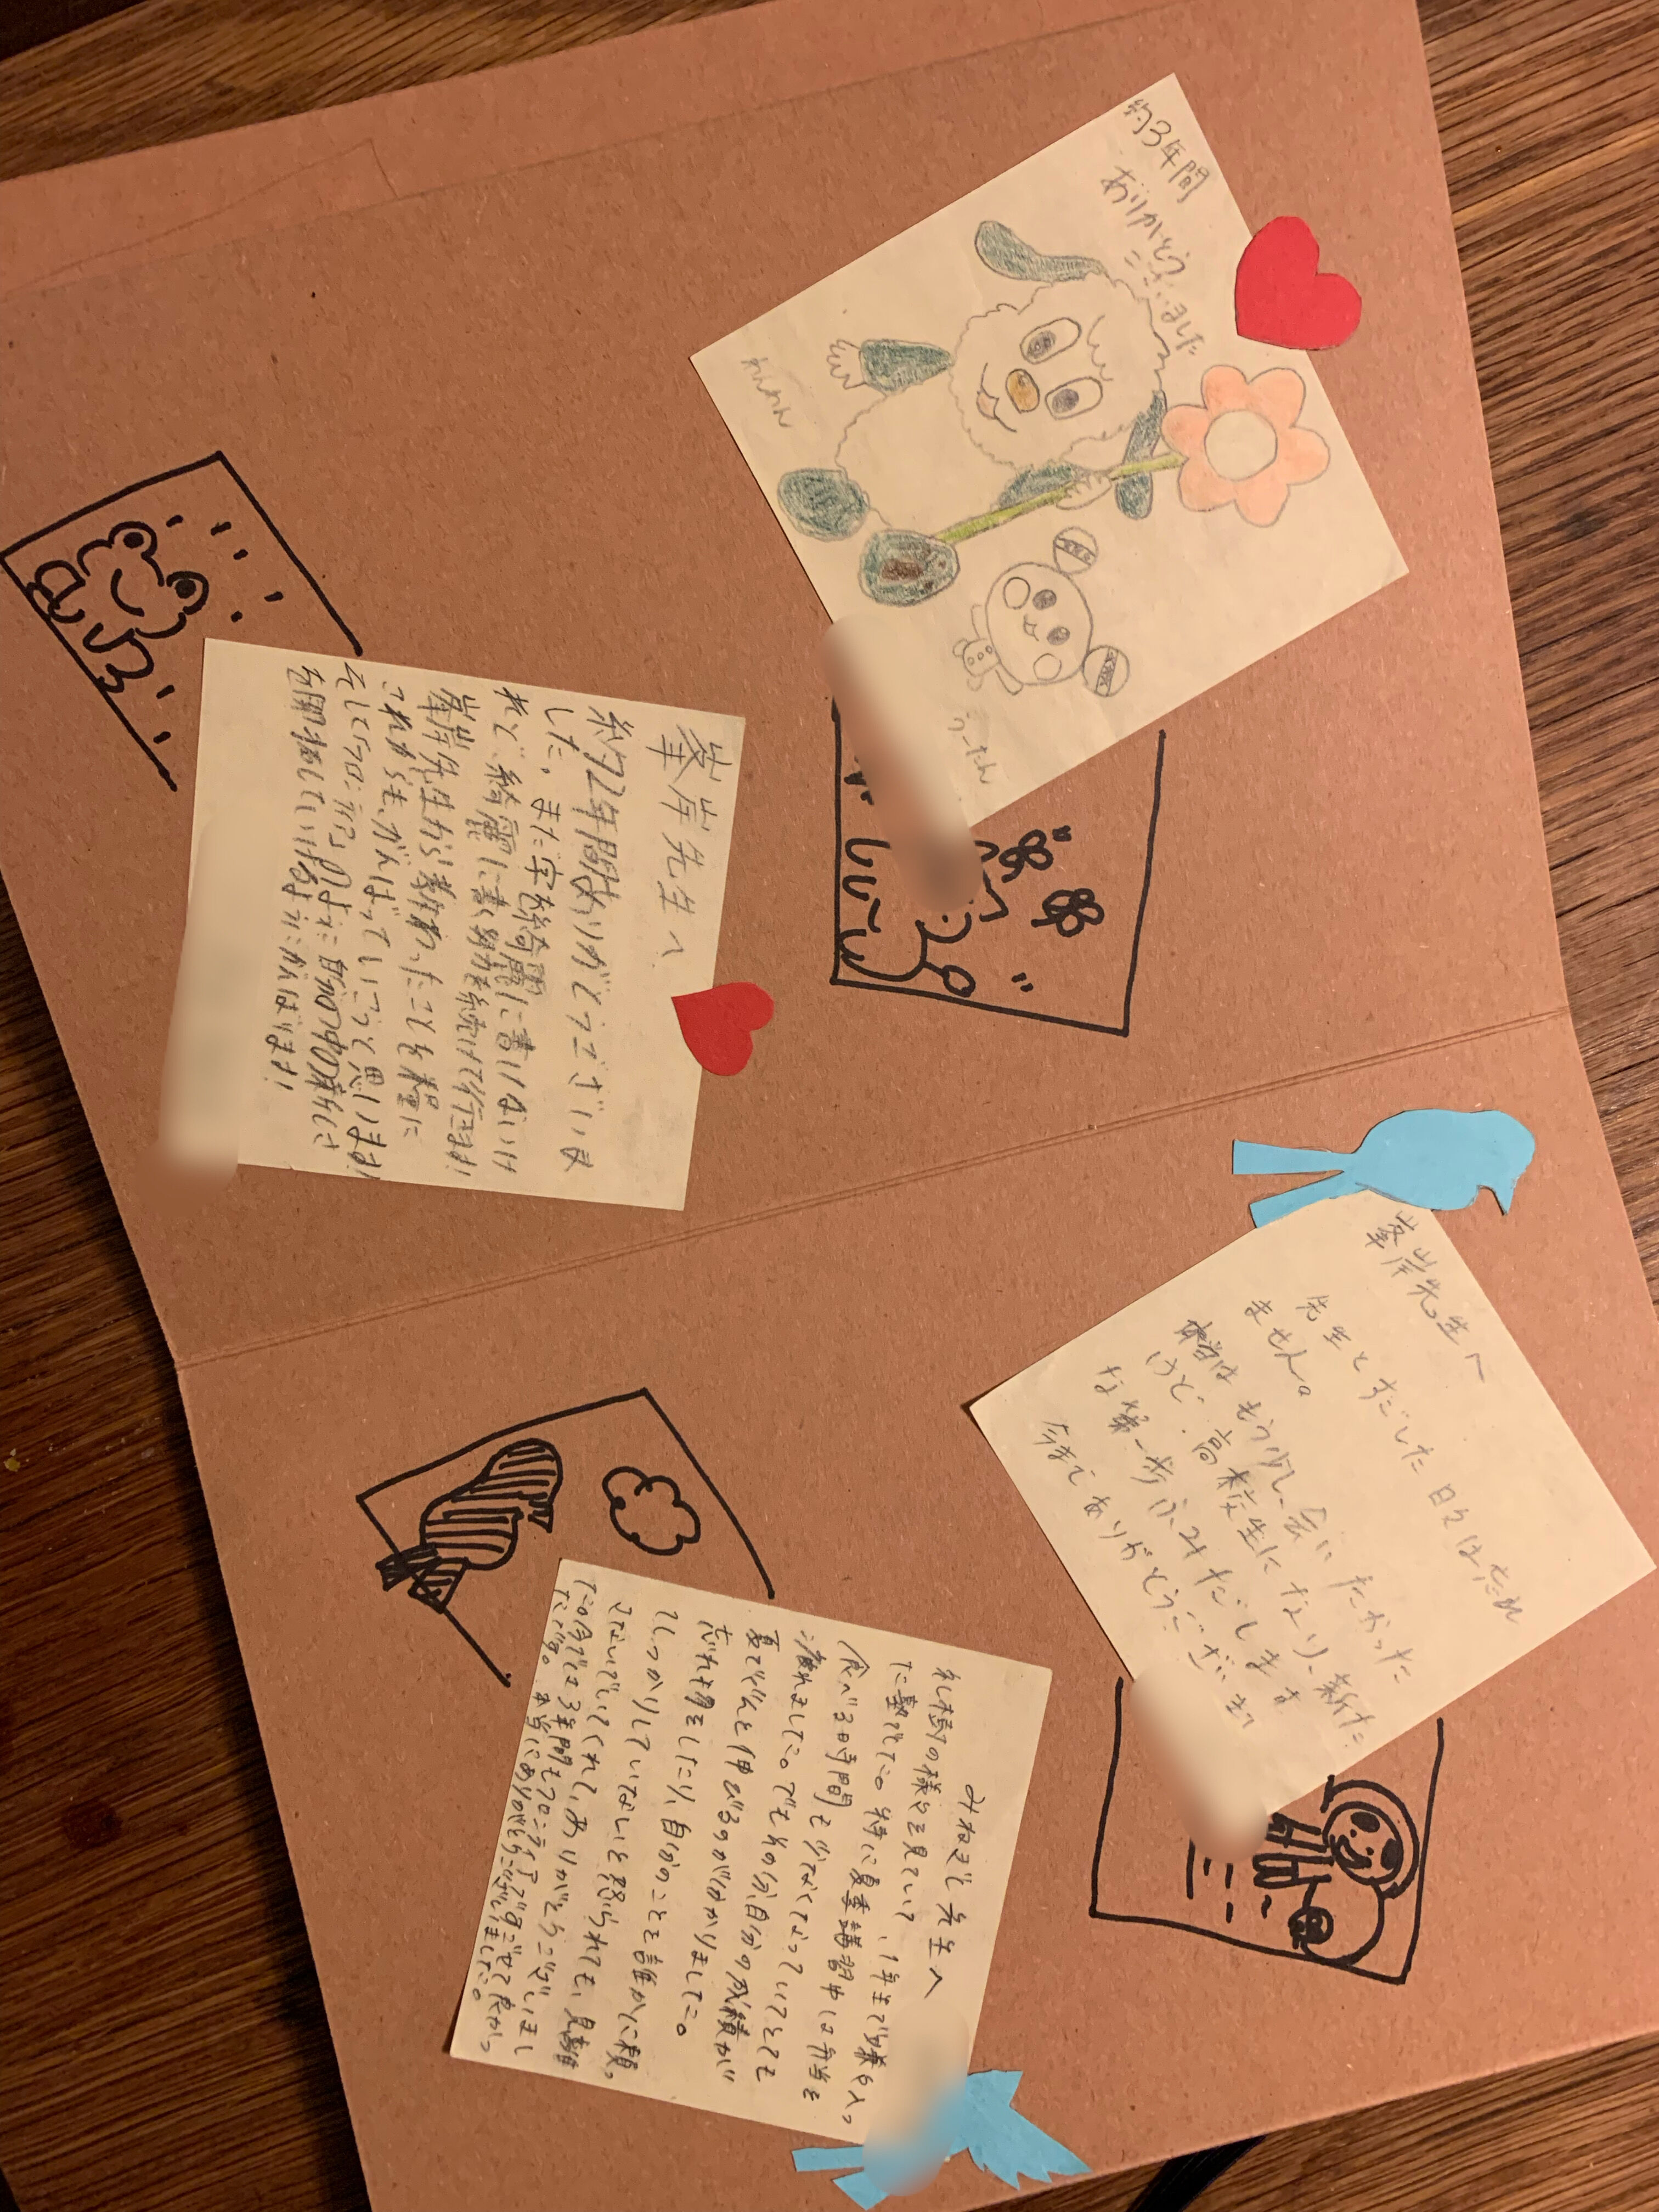 約3年間
ありがとう
ございました
わんわん
うーたん
峯岸先生へ
約2年間ありがとうございま
した。また字を綺麗に書いないけ
れど、綺麗に書く努力を続けて行きます!
峯岸先生から教わったことを糧に
これからも、がんばっていこうと思います!
そしてフロンティアのように自分の中の新しさ
を開拓していけるようにがんばります!
峯岸先生へ
先生とすごした日々は、忘れ
ません。
本当はもう少し、会いたかった
けど、高校生になり、新た
な第一歩ふみだします
今までありがとうございま
みねぎし先生へ
札幌の様子を見ていて、1年生で嫌々入っ
た塾でした。特に夏季講習中は弁当を
食べる時間も少なくなっていてとても
で伸びるのがわかりました。
忘れ物をしたり、自分のことを誰かに頼っ
しっかりしていないと怒られても、見離
さないでいてくれて、ありがとうございまし
た。3年間もフロンティアで過ごせて良かっ
たです。本当にありがとうございました。